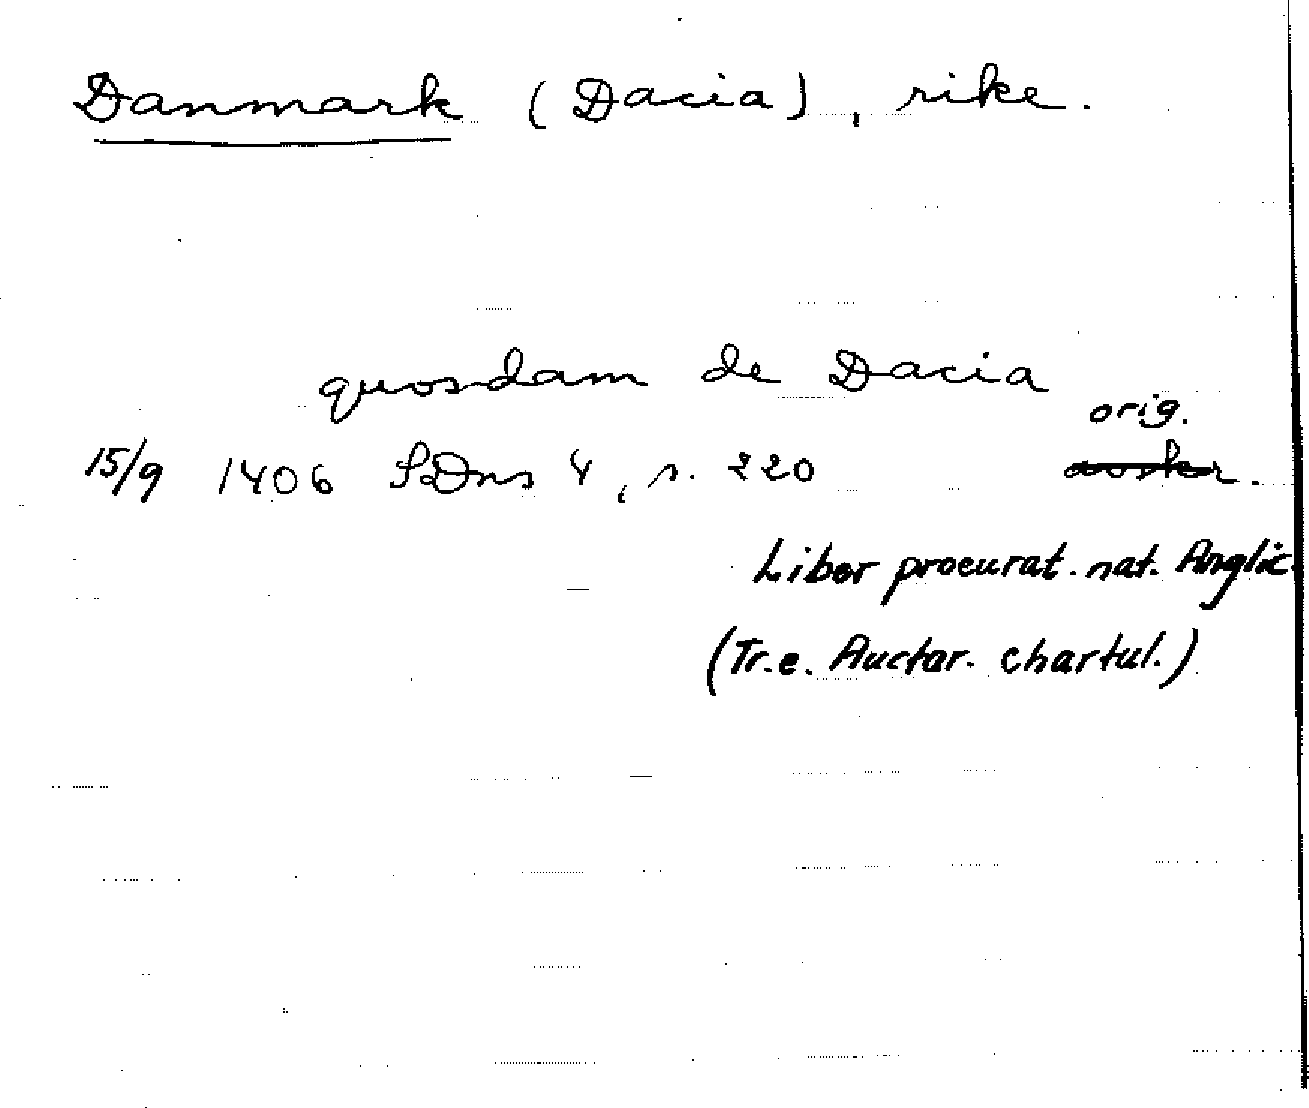 Danmark (Dacia), rike.
quosdam de Dacia
orig.
15/9 1406 SDns 4, s. 220
Liber procurat. nat. Anglic.
(Tr. e. Auctar. chartul.)